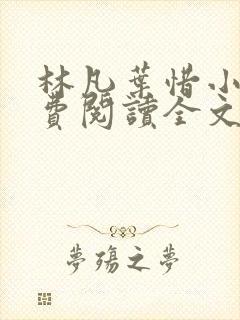 林凡葉惜小
費閱讀全文
夢殤之夢